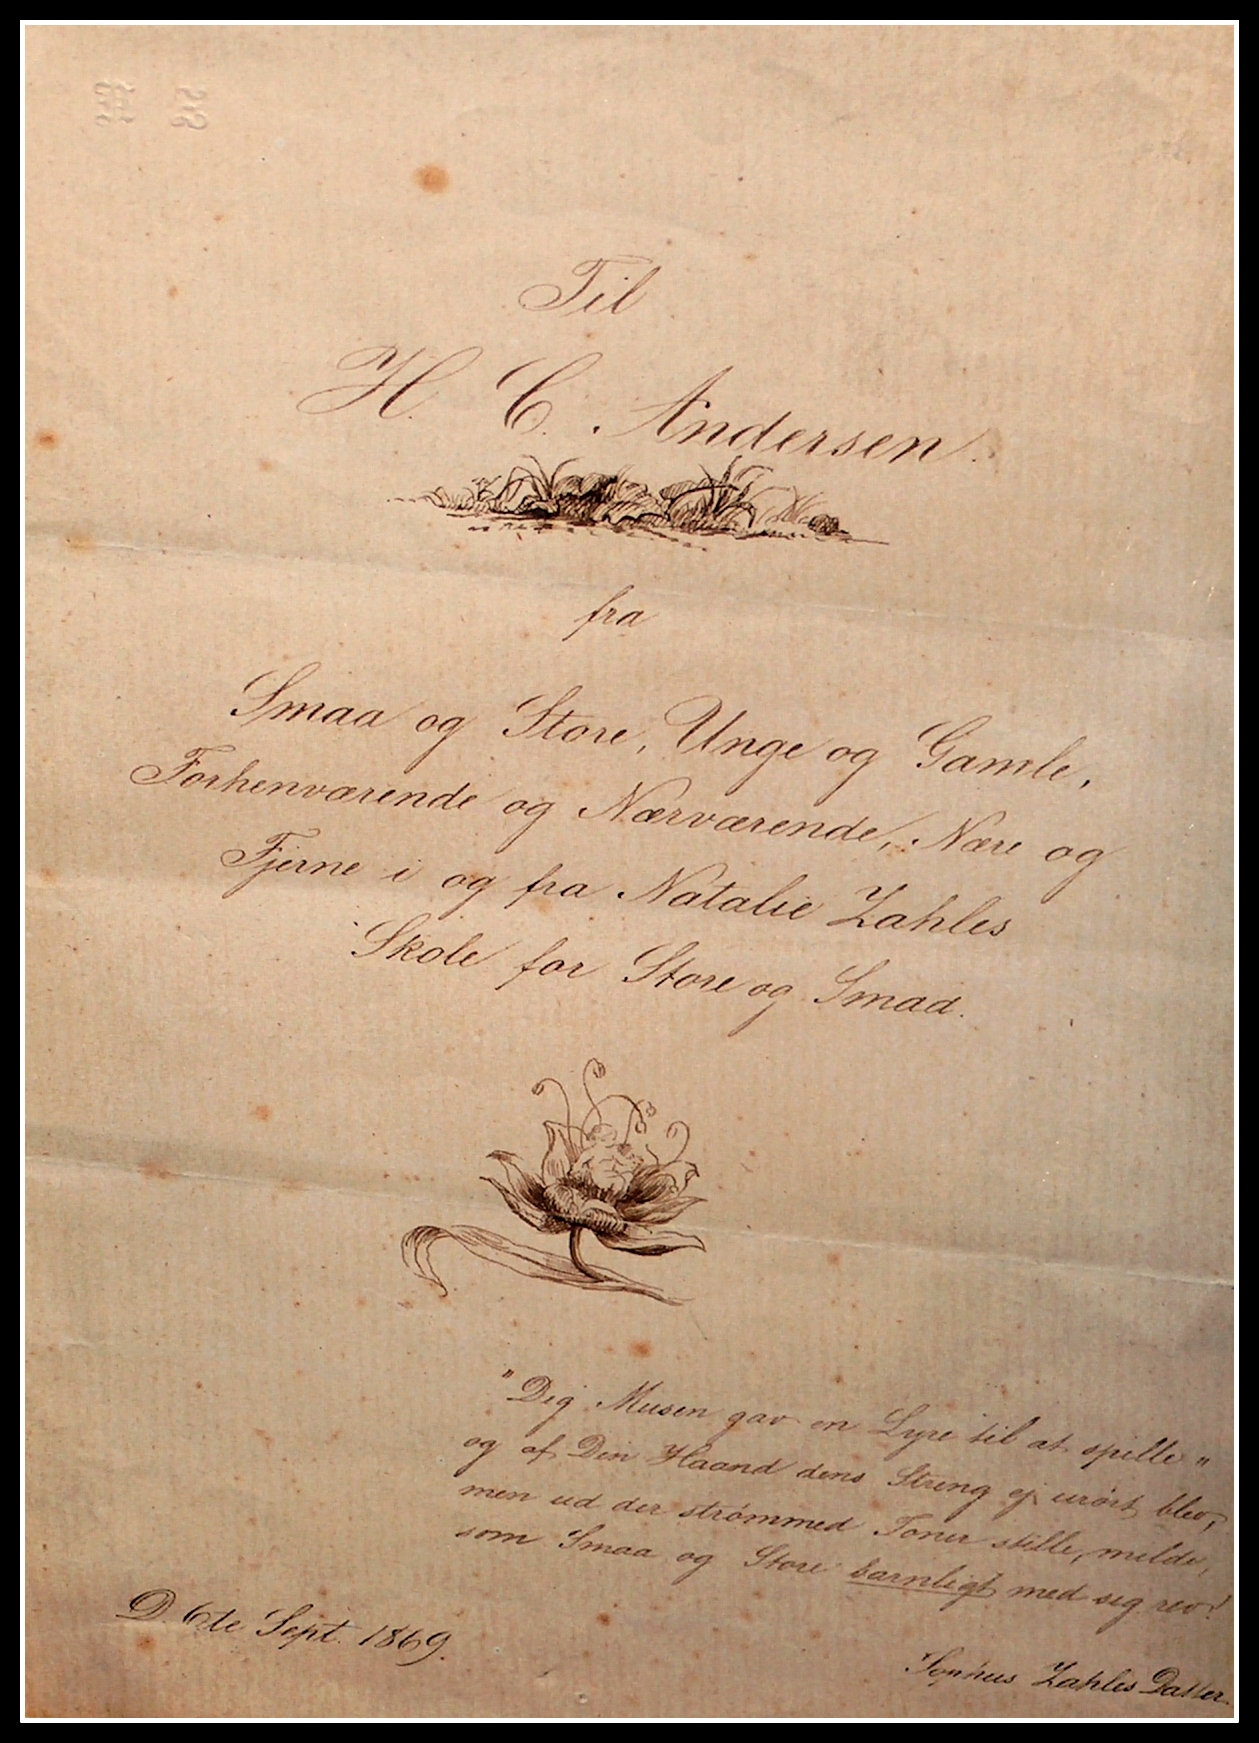 Til
H. C. Andersen.
fra
Smaa og Store, Unge og Gamle,
Forhenværende og Nærværende, Nære og
Fjerne i og fra Natalie Zahles
Skole for Store og Smaa.
"Dig Musen gav en Lyre til at spille"
og af Din Haand dens Streng ej urørt blev,
men ud der strømmed Toner stille, milde,
som Smaa og Store barnligt med sig rev!
D. 6te Sept. 1869.
Sophus Zahles Datter.